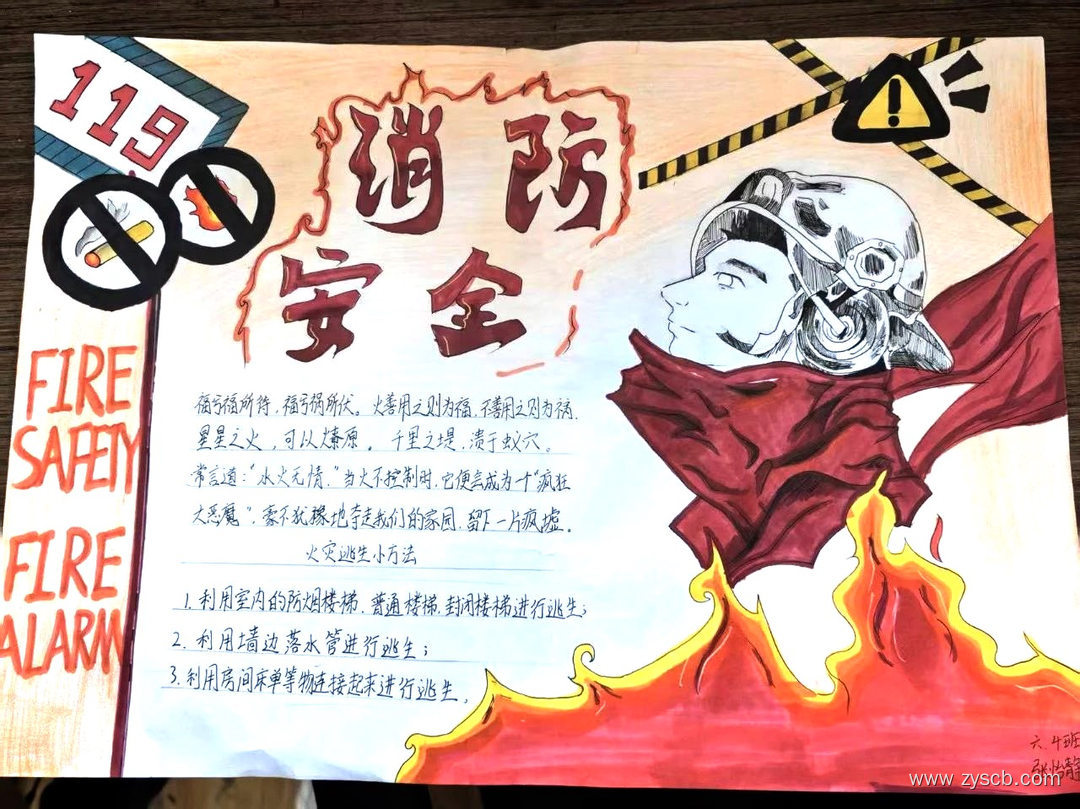 119
消防
安全
FIRE
SAFETY
FIRE
ALARM
福兮祸所待，福兮祸所伏。火善用之则为福，不善用之则为祸，
星星之火，可以燎原。千里之堤，溃于蚁穴。
常言道："水火无情，"当火不控制时，它便会成为一个"疯狂
大恶魔"，毫不犹豫地夺走我们的家园，留下一片废墟。
火灾逃生小方法
1. 利用室内的防烟楼梯，普通楼梯，封闭楼梯进行逃生；
2. 利用墙边落水管进行逃生；
3. 利用房间床单等物连接起来进行逃生。
六.4班
张怡静
www.zyscb.com